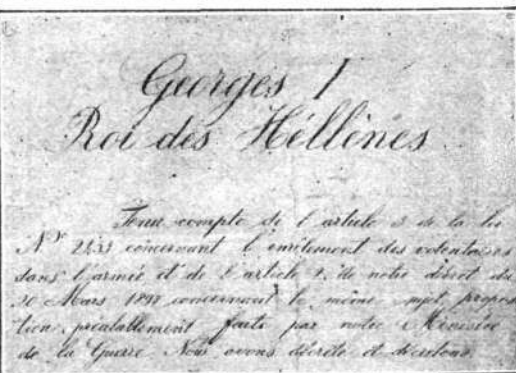 Georges I
Roi des Héllènes
Tenu compte de l'article 3 de la loi
Nº 2433 concernant l'enrôlement des volontaires
dans l'armée et de l'article 2, de notre décret du
20 Mars 1897 concernant le même sujet, propos
ition préalablement faite par notre Ministre
de la Guerre Nous avons décrété et décrétons